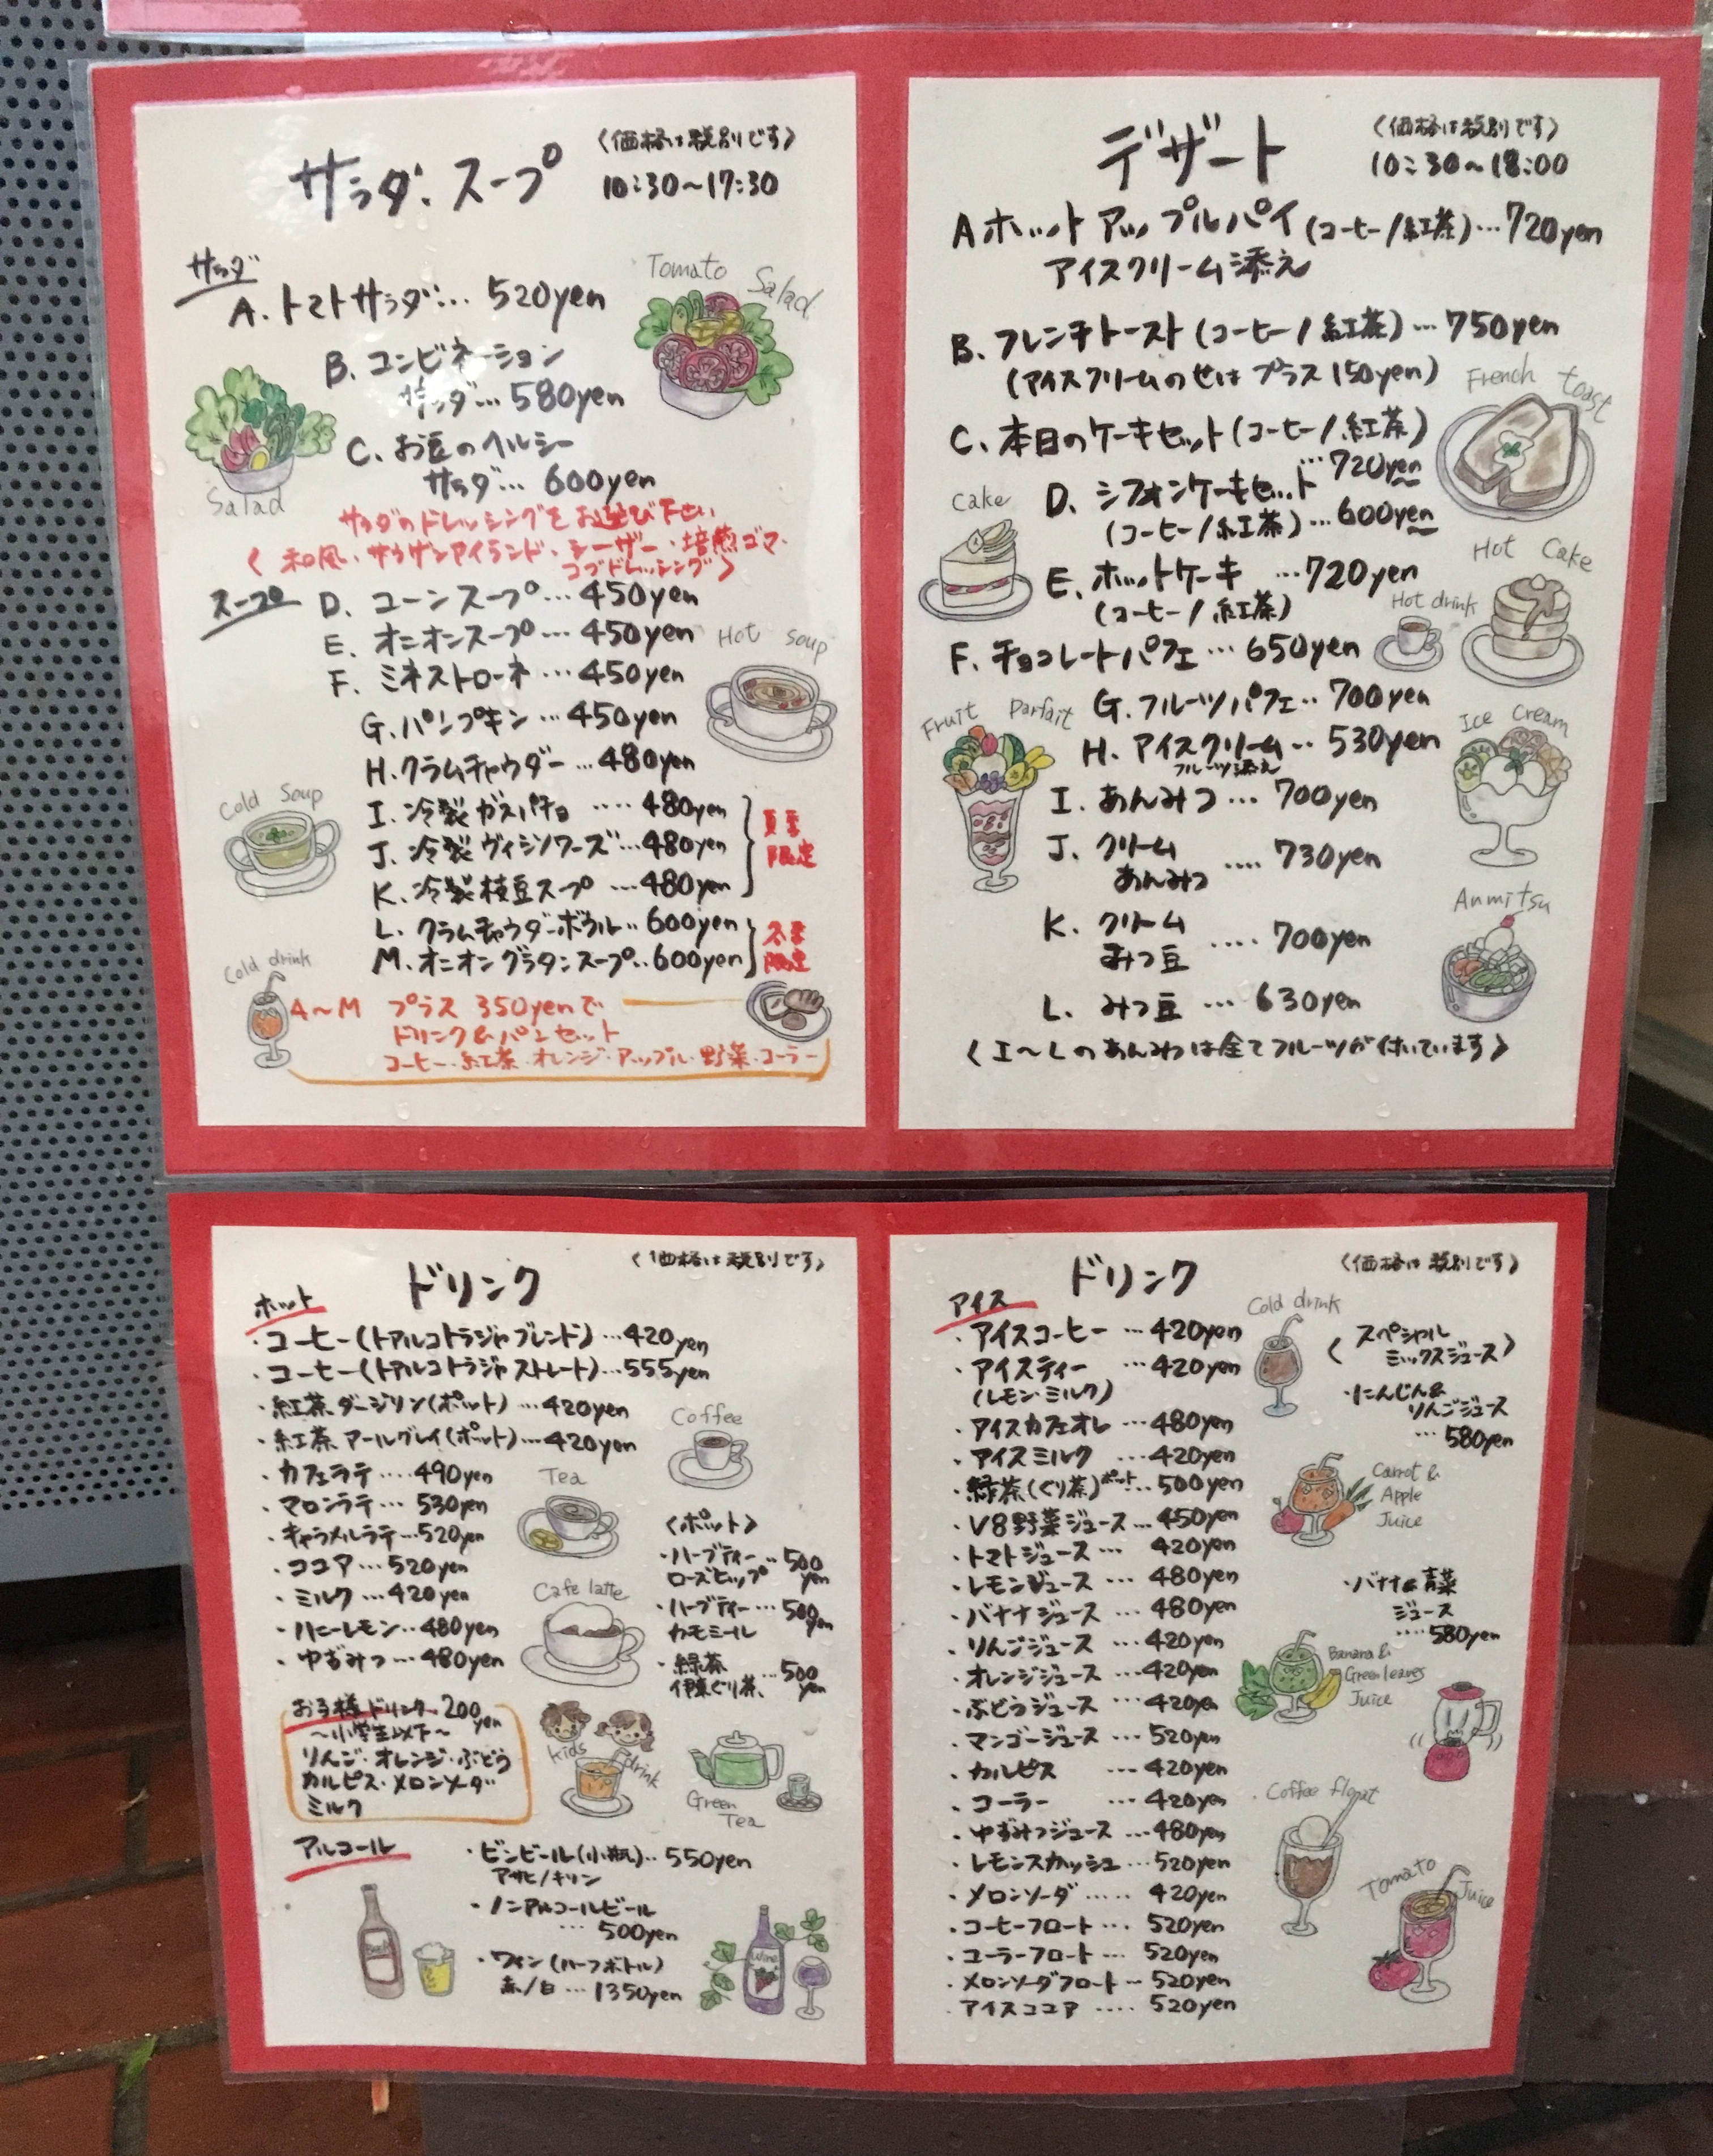 サラダ・スープ
〈価格は税別です〉
10:30〜17:30
サラダ
A.トマトサラダ… 520yen
Tomato Salad
B.コンビネーション
サラダ… 580yen
Salad
C.お豆のヘルシー
サラダ… 600yen
サラダのドレッシングをお選び下さい
〈和風・サウザンアイランド・シーザー・焙煎ゴマ・
コブドレッシング〉
スープ
D. コーンスープ…450yen
E. オニオンスープ…450yen
Hot soup
F. ミネストローネ…450yen
G.パンプキン…450yen
H.クラムチャウダー…480yen
Cold Soup
I.冷製ガスパチョ ‥‥480yen
J.冷製ヴィシソワーズ…480yen
K.冷製枝豆スープ…480yen
夏季
限定
L.クラムチャウダーボウル‥600yen
M.オニオングラタンスープ‥600yen
冬季
限定
Cold drink
A〜M プラス350yenで
ドリンク&パンセット
コーヒー・紅茶・オレンジ・アップル・野菜・コーラー
デザート
〈価格は税別です〉
10:30〜18:00
Aホットアップルパイ(コーヒー/紅茶)…720yen
アイスクリーム添え
B.フレンチトースト(コーヒー/紅茶)…750yen
(アイスクリームのせは プラス150yen)
French toast
C.本日のケーキセット(コーヒー/紅茶)
…720yen
Cake
D.シフォンケーキセット
(コーヒー/紅茶)…600yen
Hot Cake
E.ホットケーキ …720yen
(コーヒー/紅茶)
Hot drink
F.チョコレートパフェ…650yen
Fruit Parfait
G.フルーツパフェ‥700yen
Ice Cream
H.アイスクリーム‥530yen
フルーツ添え
I.あんみつ…700yen
J.クリーム
あんみつ ‥‥730yen
K.クリーム
みつ豆 ‥‥700yen
Anmitsu
L.みつ豆…630yen
〈I〜Lのあんみつは全てフルーツが付いています〉
ドリンク
〈価格は税別です〉
ホット
・コーヒー(トアルコトラジャブレンド)…420yen
・コーヒー(トアルコトラジャストレート)…555yen
・紅茶 ダージリン(ポット)…420yen
・紅茶 アールグレイ(ポット)…420yen
・カフェラテ‥‥490yen
・マロンラテ…530yen
・キャラメルラテ…520yen
・ココア…520yen
・ミルク…420yen
・ハニーレモン‥480yen
・ゆずみつ…480yen
Coffee
Tea
Cafe latte
〈ポット〉
・ハーブティー
ローズヒップ ‥500yen
・ハーブティー…500yen
カモミール
・緑茶
伊東ぐり茶 …500yen
お子様ドリンク 200yen
〜小学生以下〜
りんご・オレンジ・ぶどう
カルピス・メロンソーダ
ミルク
kids drink
Green Tea
アルコール
・ビンビール(小瓶)‥550yen
アサヒ/キリン
・ノンアルコールビール
…500yen
・ワイン(ハーフボトル)
赤/白…1350yen
Beer
Wine
ドリンク
〈価格は税別です〉
アイス
・アイスコーヒー…420yen
・アイスティー …420yen
(レモン・ミルク)
・アイスカフェオレ…480yen
・アイスミルク …420yen
・緑茶(ぐり茶)ポット…500yen
・V8野菜ジュース…450yen
・トマトジュース…420yen
・レモンジュース…480yen
・バナナジュース…480yen
・りんごジュース…420yen
・オレンジジュース…420yen
・ぶどうジュース…420yen
・マンゴージュース…520yen
・カルピス …420yen
・コーラー …420yen
・ゆずみつジュース…480yen
・レモンスカッシュ…520yen
・メロンソーダ‥‥‥420yen
・コーヒーフロート…520yen
・コーラーフロート…520yen
・メロンソーダフロート…520yen
・アイスココア‥‥520yen
Cold drink
〈スペシャル
ミックスジュース〉
・にんじん&
りんごジュース
…580yen
Carrot & Apple Juice
・バナナ&青菜
ジュース
‥‥580yen
Banana & Green leaves Juice
Coffee float
Tomato Juice